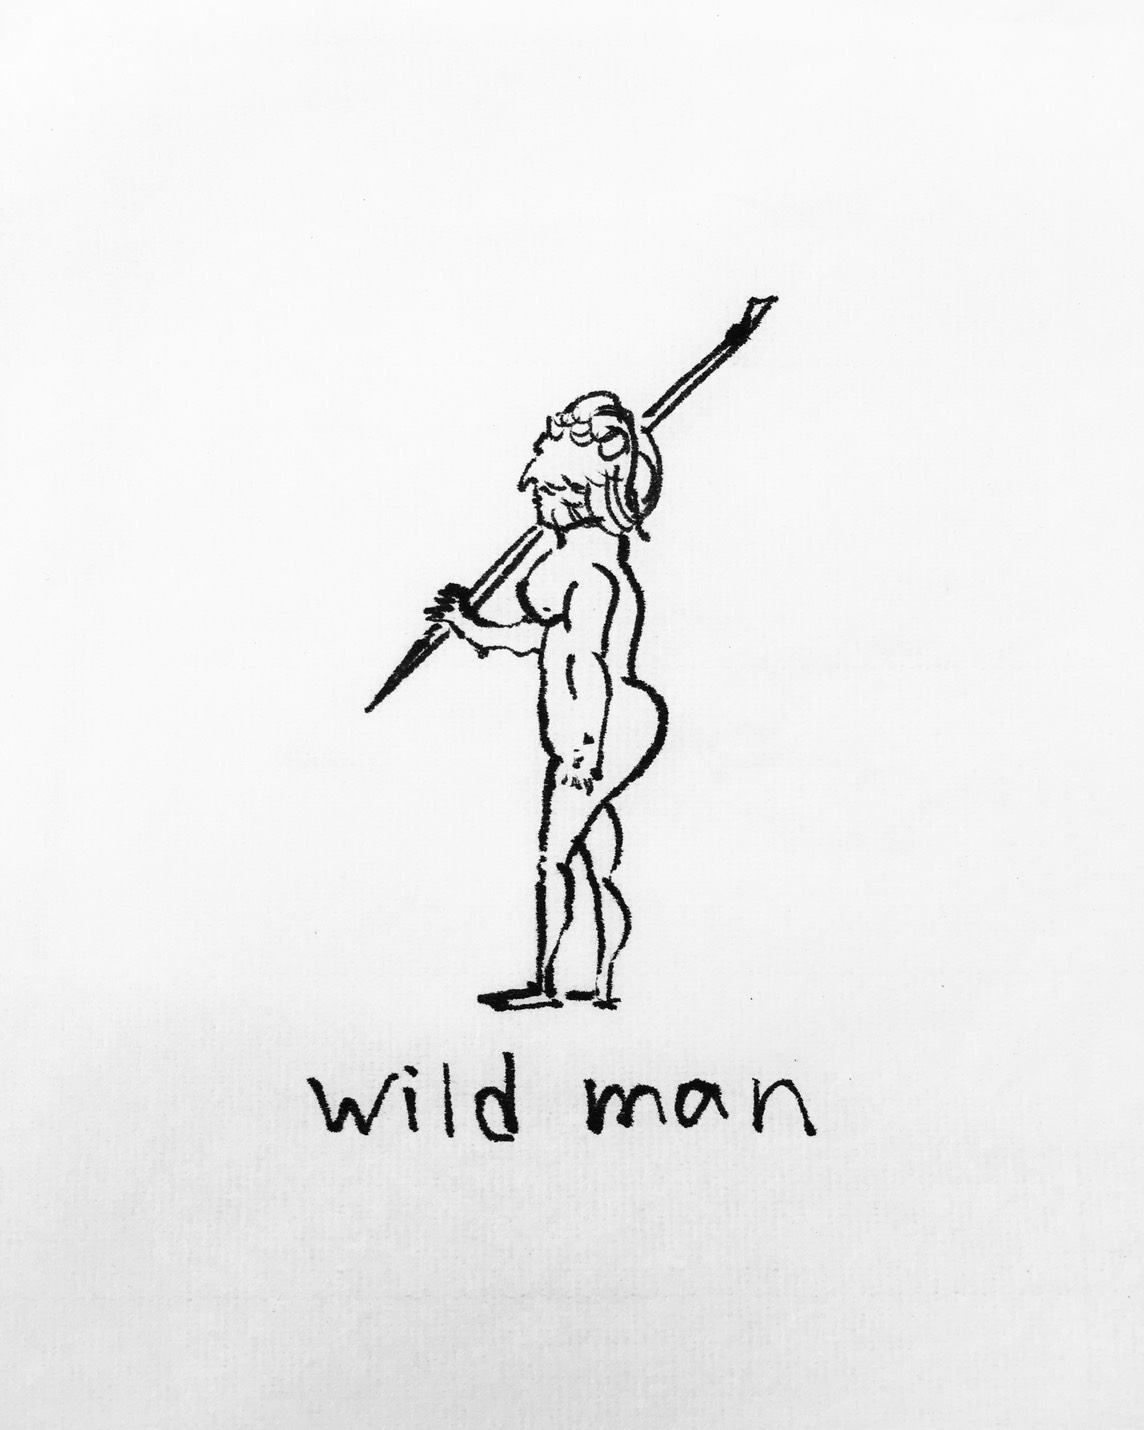 wild man